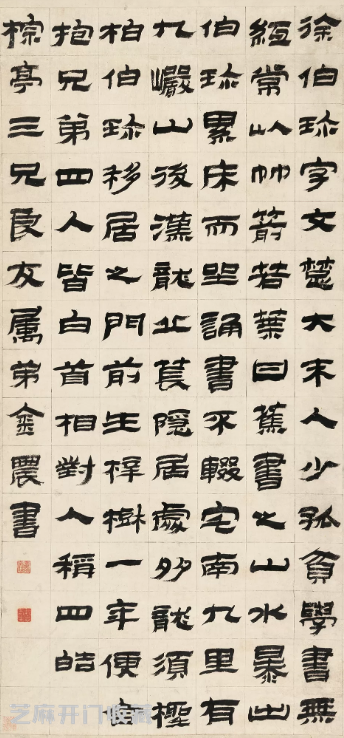 徐伯珍字文楚大末人少孤貧學書無
紙常以竹箭若葉甘蕉書之山水暴出
伯珍累床而坐誦書不輟宅南九里有
九巖山後漢龍丘萇隱居處多龍須檉
柏伯珍移居之門前生梓樹一年便合
抱兄弟四人皆白首相對人稱四皓
棕亭三兄良友属弟金農書
芝麻开门收藏